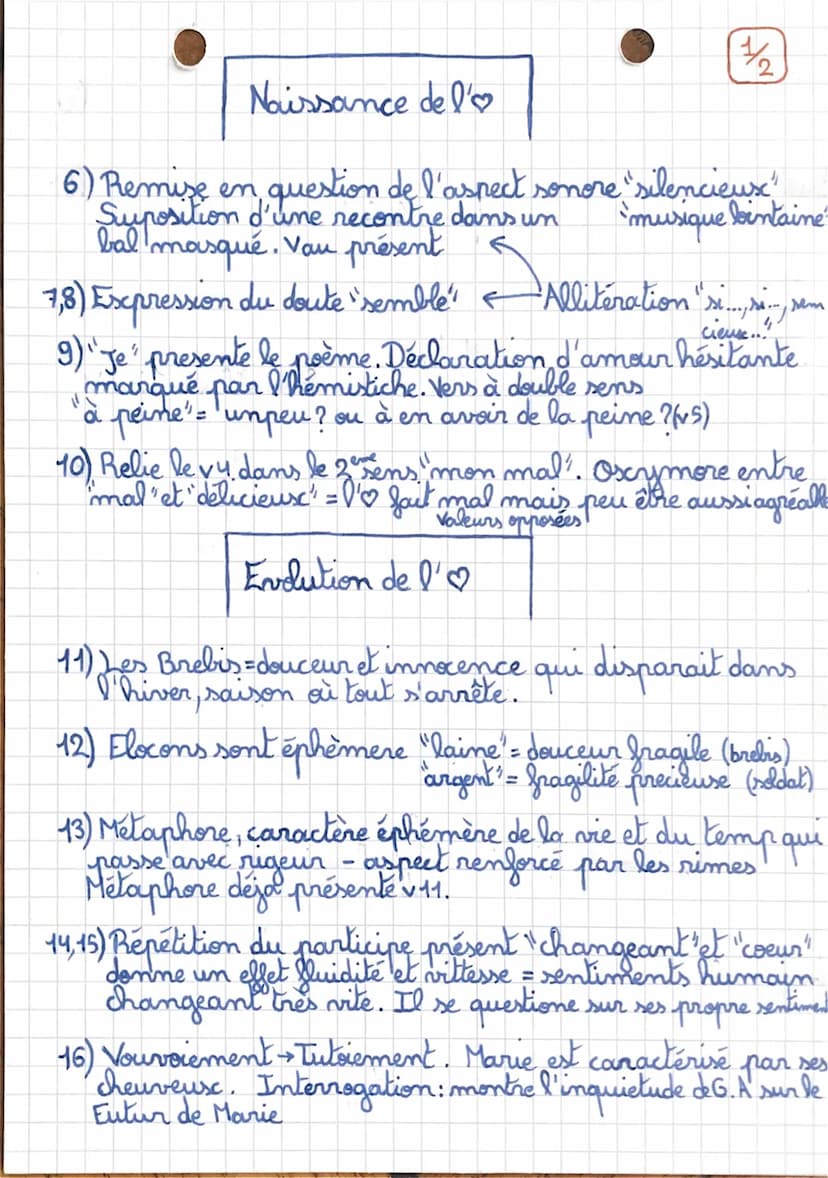 1/2
Naissance de l'♡
6) Remise en question de l'aspect sonore "silencieux"
Suposition d'une recontre dans un "musique lointaine"
bal masqué. Vau présent
7,8) Expression du doute "semble" Allitération "si..., si..., sem
cieux..."
9) "Je" presente le poème. Déclaration d'amour hésitante
marqué par l'hémistiche. Vers à double sens
"à peine" = un peu? ou à en avoir de la peine? (v5)
10) Relie le v4 dans le 2eme sens "mon mal". Oxymore entre
"mal" et "délicieux" = l'♡ fait mal mais peu être aussi agréable
Valeurs opposées
Evolution de l'♡
11) Les Brebis = douceur et innocence qui disparait dans
l'hiver, saison où tout s'arrête.
12) Flocons sont éphèmere "laine" = douceur fragile (brebis)
"argent" = fragilité precieuse (soldat)
13) Métaphore, caractère éphémère de la vie et du temp qui
passe avec rigeur - aspect renforcé par les rimes
Métaphore déjà présente v11.
14,15) Répétition du participe présent "changeant" et "coeur"
donne un effet fluidité et vittesse = sentiments humain
changeant très vite. Il se questione sur ses propre sentiment
16) Vouvoiement → Tutoiement. Marie est caractérisé par ses
cheuveux. Interrogation: montre l'inquietude de G.A sur le
Futur de Marie